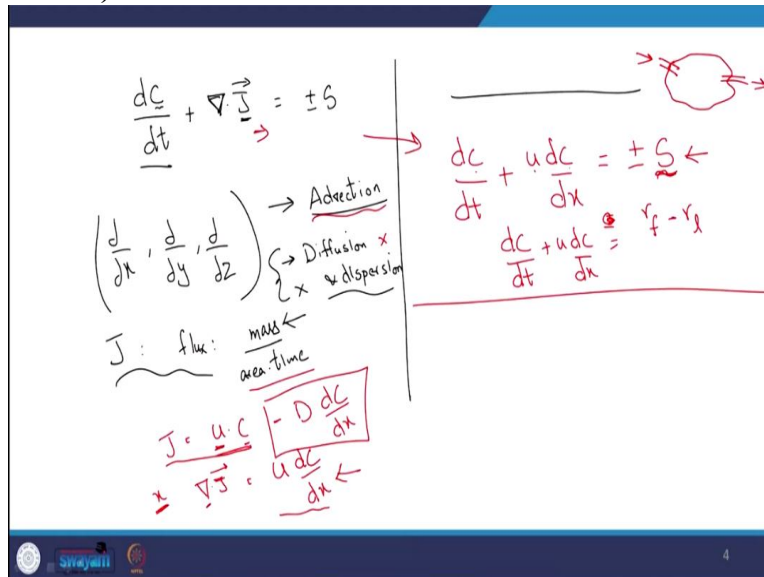 dc/dt + ∇·J⃗ = ± S
(d/dx, d/dy, d/dz)
→ Advection
→ Diffusion x
x & dispersion
J : flux : mass ← / area·time
J = u·c - D dc/dx
x ∇J⃗ = u dc/dx ←
dc/dt + u dc/dx = ± S ←
dc/dt + u dc/dx = r_f - r_l
swayam
4